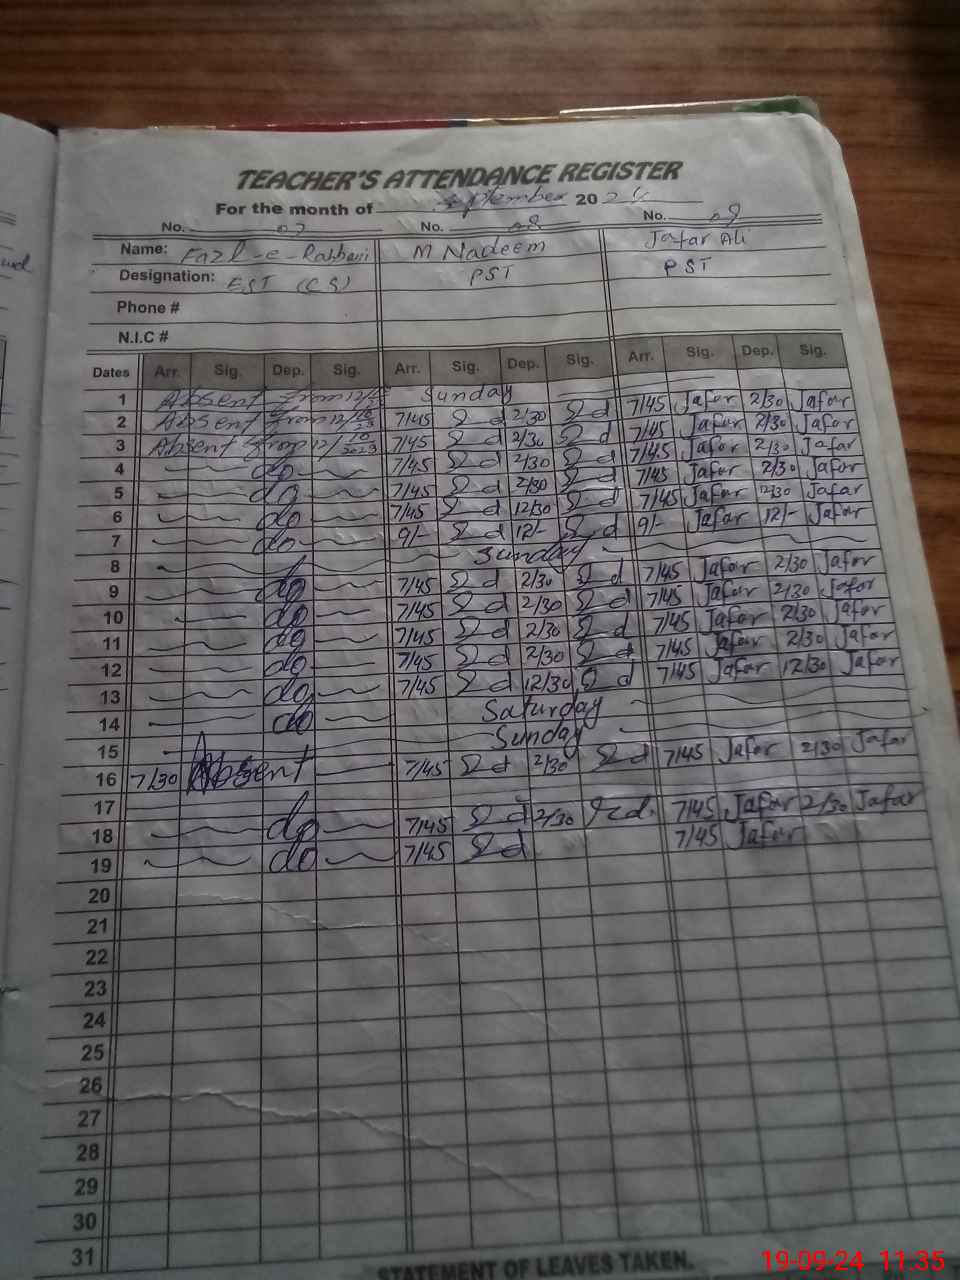 TEACHER'S ATTENDANCE REGISTER
For the month of September 2024
No. 07 No. 08 No. 09
Name: Fazl-e-Rabbani M Nadeem Jafar Ali
Designation: EST (CS) PST PST
Phone #
N.I.C #
Dates Arr. Sig. Dep. Sig. Arr. Sig. Dep. Sig. Arr. Sig. Dep. Sig.
1 Absent from 12/ Sunday
2 Absent from 12/10/23 7/45 2/30 7/45 Jafar 2/30 Jafar
3 Absent from 12/10/2023 7/45 2/30 7/45 Jafar 2/30 Jafar
4 do 7/45 2/30 7/45 Jafar 2/30 Jafar
5 do 7/45 2/30 7/45 Jafar 2/30 Jafar
6 do 7/45 12/30 7/45 Jafar 12/30 Jafar
7 do 9/- 12/- 9/- Jafar 12/- Jafar
8 Sunday
9 do 7/45 2/30 7/45 Jafar 2/30 Jafar
10 do 7/45 2/30 7/45 Jafar 2/30 Jafar
11 do 7/45 2/30 7/45 Jafar 2/30 Jafar
12 do 7/45 2/30 7/45 Jafar 2/30 Jafar
13 do 7/45 12/30 7/45 Jafar 12/30 Jafar
14 do Saturday
15 Sunday
16 7/30 Absent 7/45 2/30 7/45 Jafar 2/30 Jafar
17
18 do 7/45 2/30 7/45 Jafar 2/30 Jafar
19 do 7/45 7/45 Jafar
20
21
22
23
24
25
26
27
28
29
30
31
STATEMENT OF LEAVES TAKEN.
19-09-24 11:35